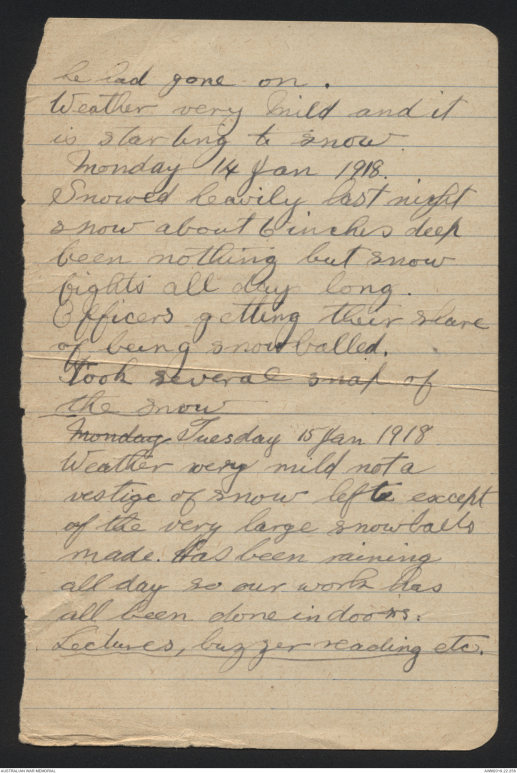 he had gone on.
Weather very mild and it
is starting to snow.
Monday 14 Jan 1918.
Snowed heavily last night
snow about 6 inches deep
been nothing but snow
fights all day long.
Officers getting their share
of being snowballed.
Took several snap of
the snow
Monday Tuesday 15 Jan 1918
Weather very mild not a
vestige of snow left except
of the very large snowballs
made. Has been raining
all day so our work has
all been done indoors.
Lectures, buzzer reading etc.
AUSTRALIAN WAR MEMORIAL